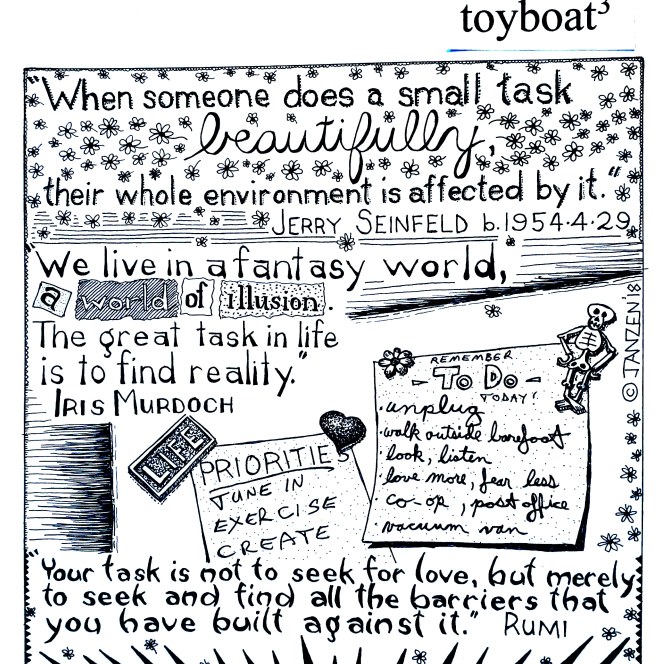 toyboat³
"When someone does a small task
beautifully,
their whole environment is affected by it."
JERRY SEINFELD b.1954·4·29
"We live in a fantasy world,
a world of illusion.
The great task in life
is to find reality."
IRIS MURDOCH
© JANZEN '18
REMEMBER
- TO DO -
TODAY!
·unplug
·walk outside barefoot
·look, listen
·love more, fear less
·co-op, post office
·vacuum van
LIFE
PRIORITIES
TUNE IN
EXERCISE
CREATE
"Your task is not to seek for love, but merely
to seek and find all the barriers that
you have built against it." RUMI